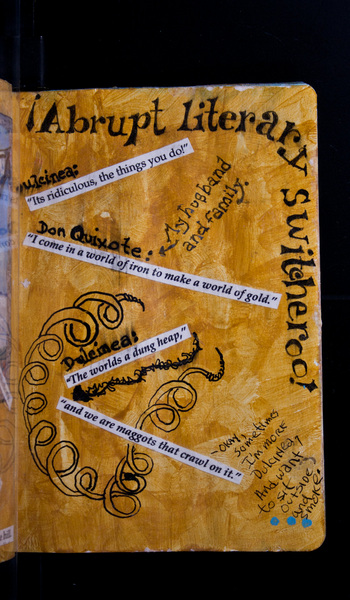 ¡Abrupt literary Switcheroo!
Dulcinea:
"Its ridiculous, the things you do!"
My husband
and family.
Don Quixote:
"I come in a world of iron to make a world of gold."
Dulcinea:
"The worlds a dung heap,"
"and we are maggots that crawl on it."
sometimes
I'm more
Dulcinea?
And want
to sit
outside
and
smoke.